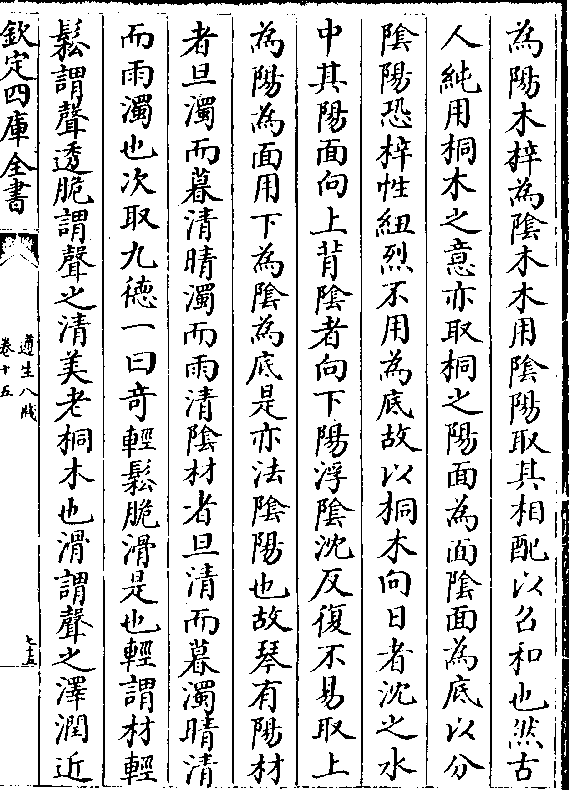 為陽木梓為陰木木用陰陽取其相配以召和也然古
人純用桐木之意亦取桐之陽面為面陰面為底以分
陰陽恐梓性紐烈不用為底故以桐木向日者沈之水
中其陽面向上背陰者向下陽浮陰沈反復不易取上
為陽為面用下為陰為底是亦法陰陽也故琴有陽材
者旦濁而暮清晴濁而雨清陰材者旦清而暮濁晴清
而雨濁也次取九德一曰竒輕鬆脆滑是也輕謂材輕
鬆謂聲透脆謂聲之清美老桐木也滑謂聲之澤潤近
欽定四庫全書
遵生八牋
卷十五
七十五